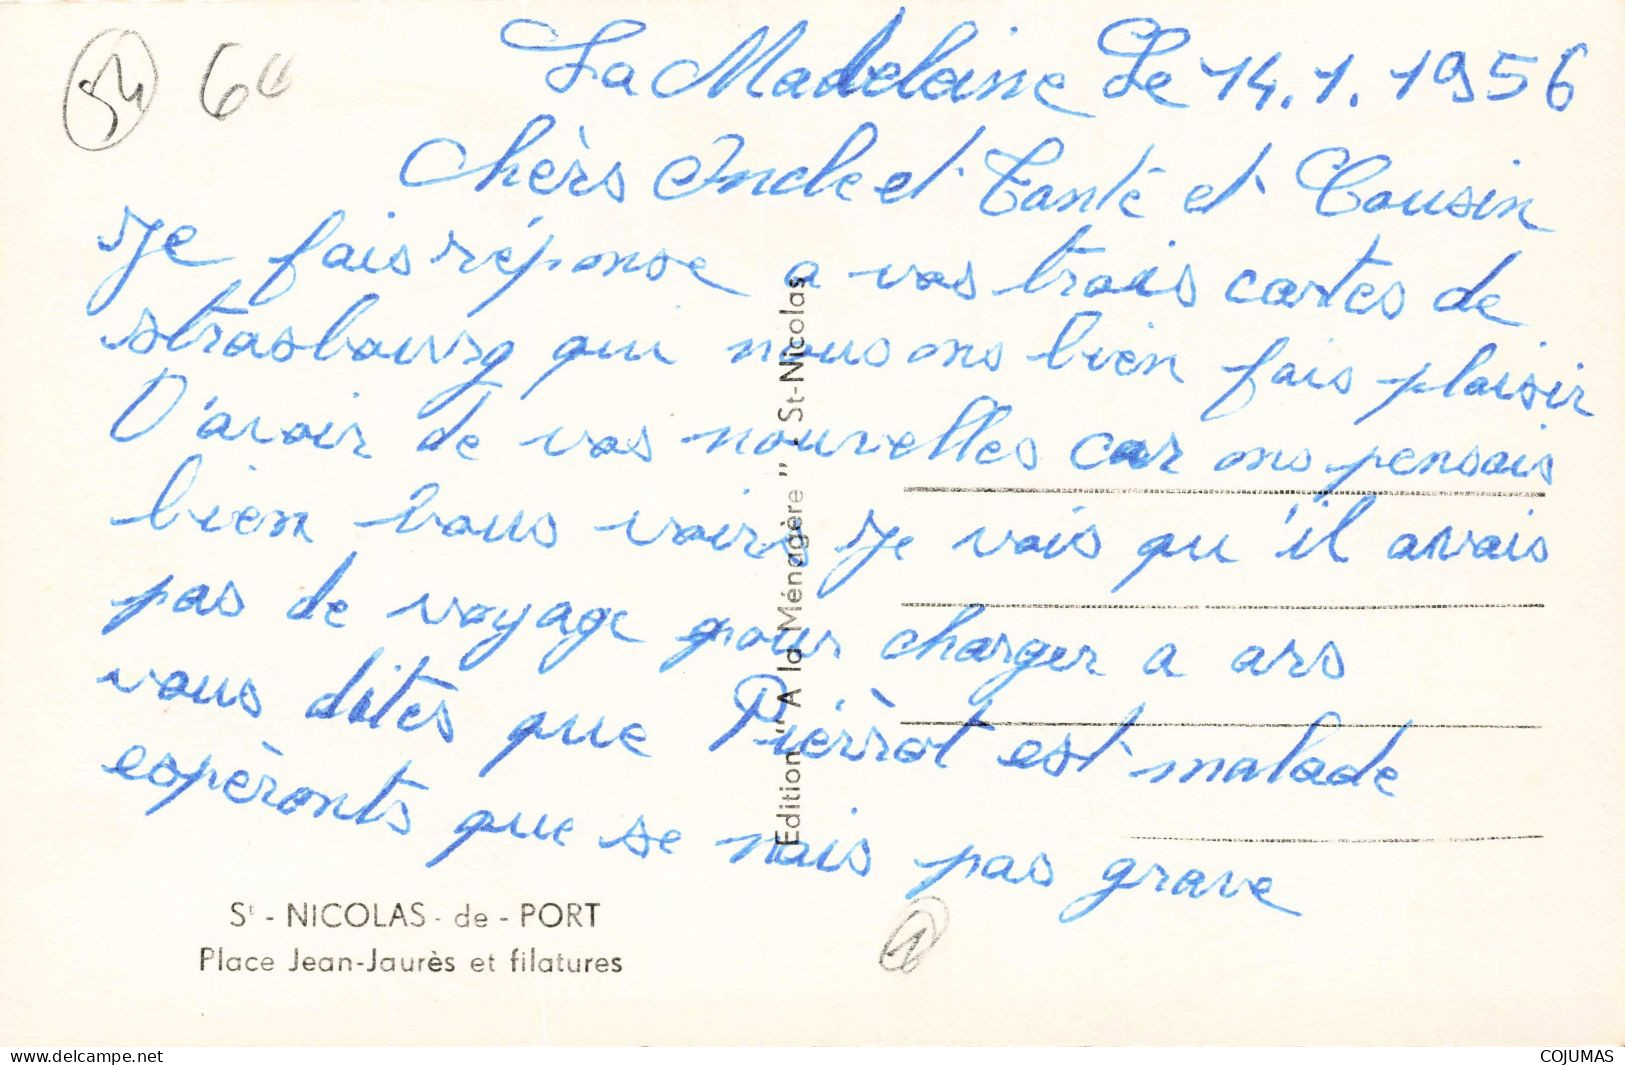 54
6
La Madeleine Le 14.1.1956
Chèrs Oncle et Tanté et Cousin
Je fais réponse a vos trois cartes de
strasbourg qui nous ons bien fais plaisir
D'avoir de vos nouvelles car ons pensais
bien vous voirs je vois qu'il avais
pas de voyage pour charger a ars
vous dites que Pièrrot est malade
espèronts que se nais pas grave
Edition "A la Ménagère" - St-Nicolas
St - NICOLAS - de - PORT
Place Jean-Jaurès et filatures
1
www.delcampe.net
COJUMAS